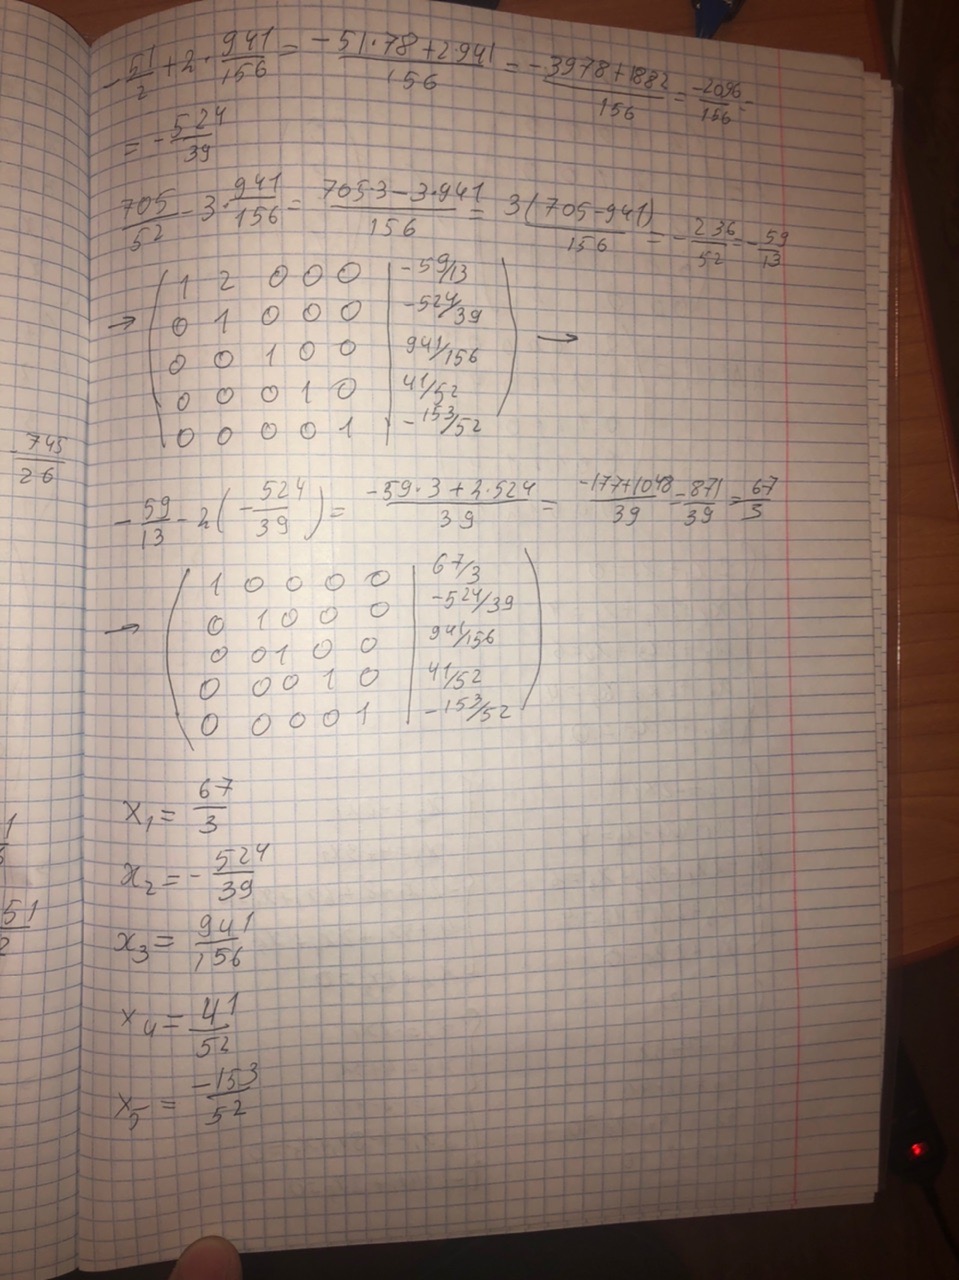 -51/2 + 2·941/156 = -51·78+2·941/156 = -3978+1882/156 = -2096/156 =
= -524/39
705/52 - 3·941/156 = 705·3-3·941/156 = 3(705-941)/156 = -236/52 = -59/13
→ ( 1 2 0 0 0 | -59/13
0 1 0 0 0 | -524/39
0 0 1 0 0 | 941/156
0 0 0 1 0 | 41/52
0 0 0 0 1 | -153/52 ) →
-59/13 - 2(-524/39) = -59·3+2·524/39 = -177+1048/39 = 871/39 = 67/3
→ ( 1 0 0 0 0 | 67/3
0 1 0 0 0 | -524/39
0 0 1 0 0 | 941/156
0 0 0 1 0 | 41/52
0 0 0 0 1 | -153/52 )
x₁ = 67/3
x₂ = -524/39
x₃ = 941/156
x₄ = 41/52
x₅ = -153/52
745/26
51/2